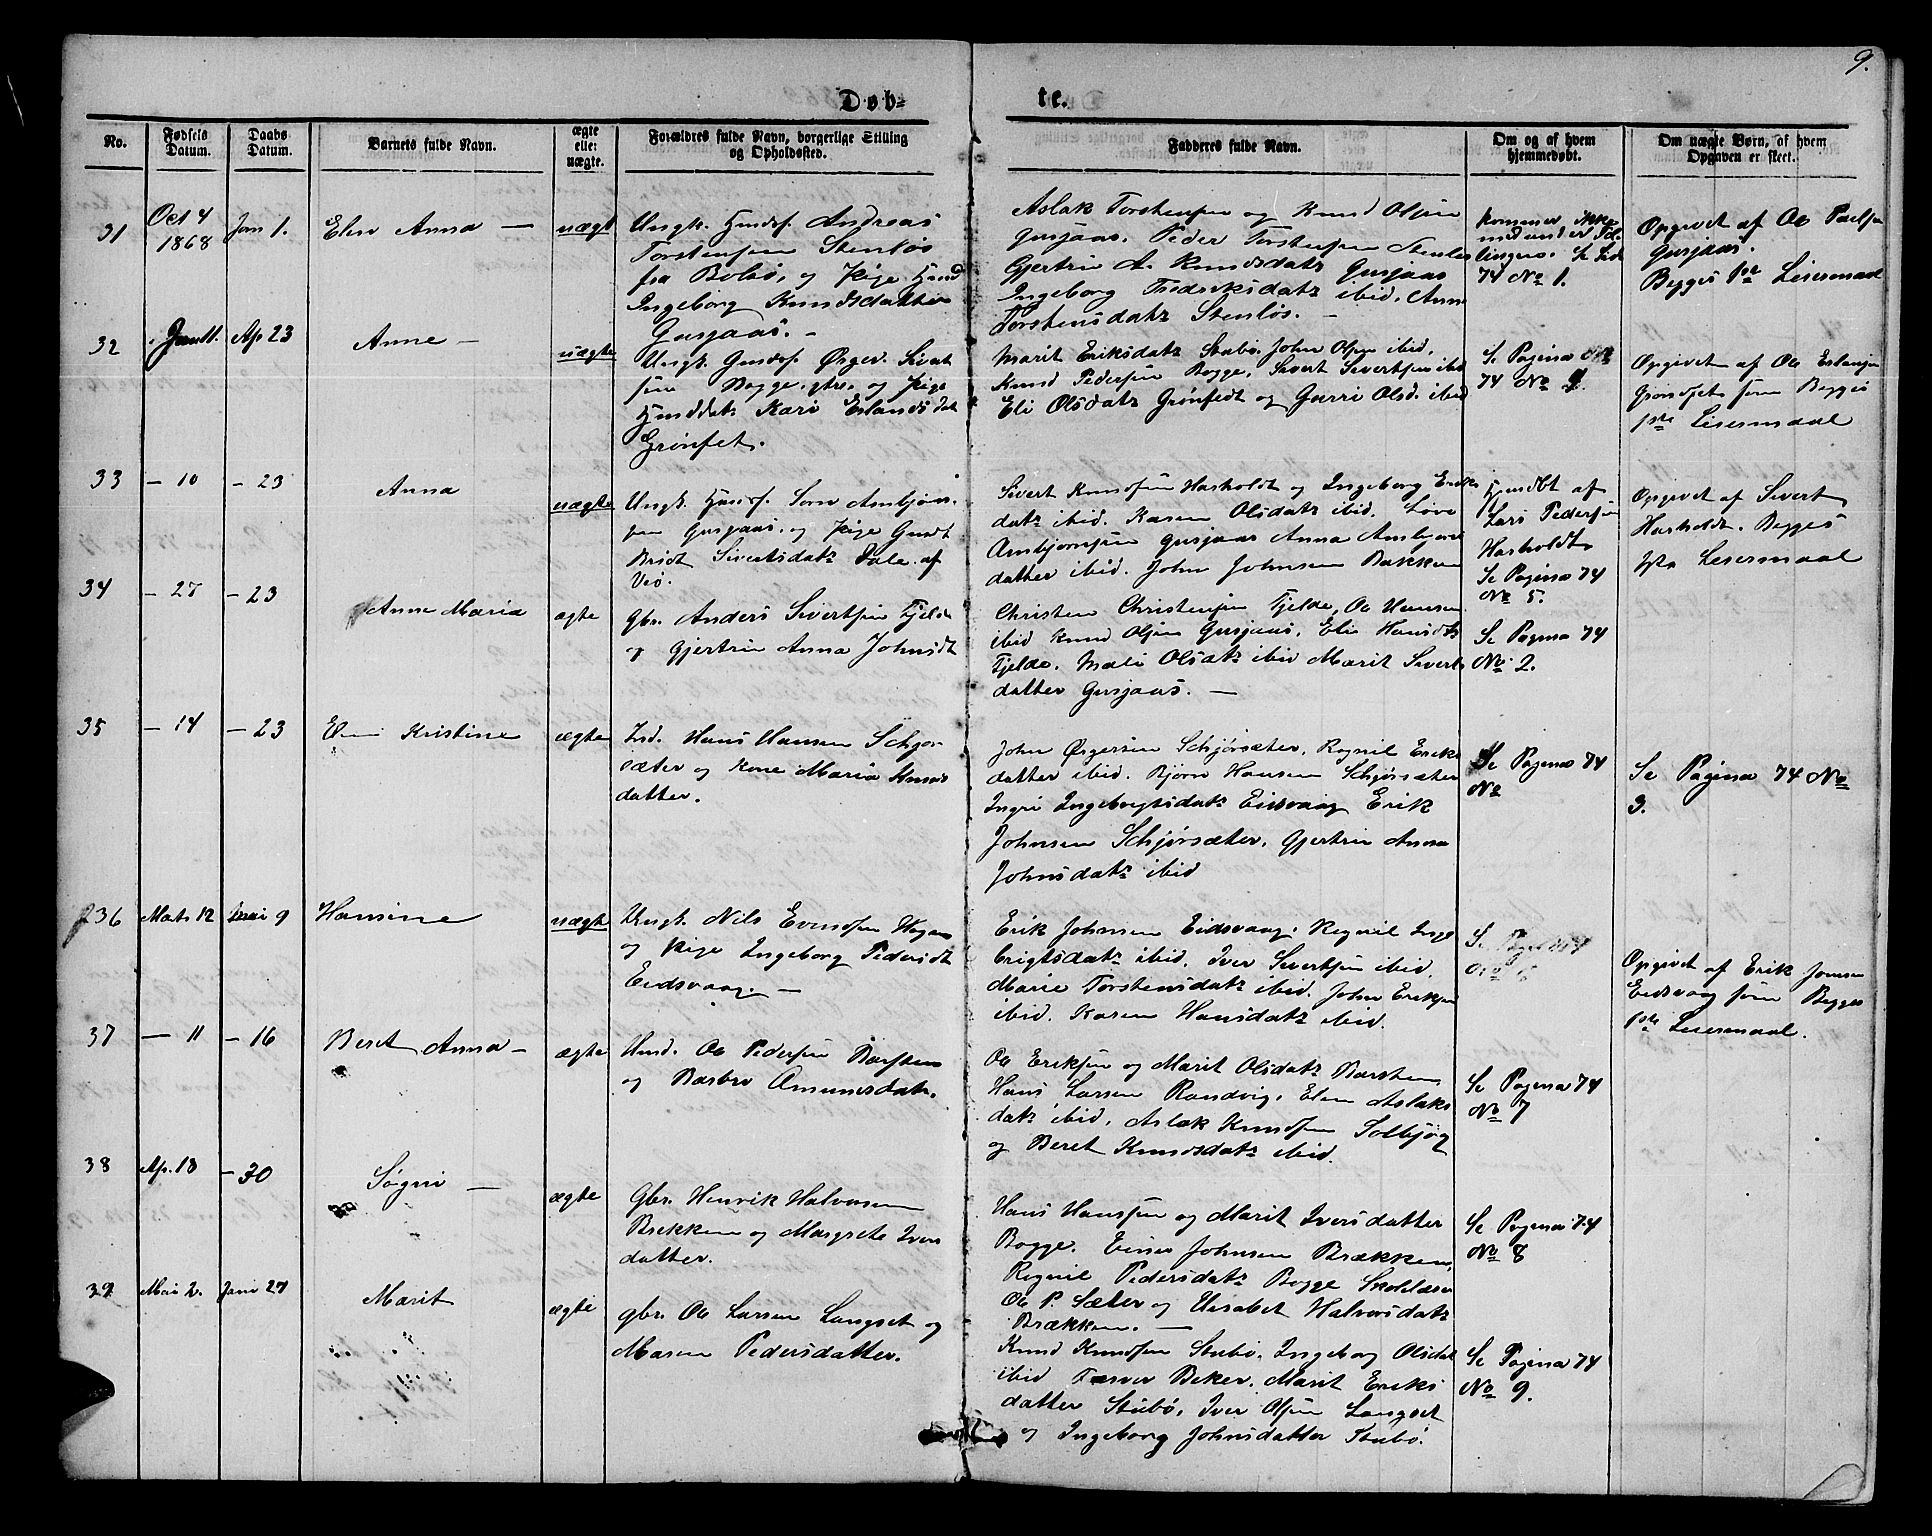 9.
Døb-
te.
No.
Fødsels Datum.
Daabs Datum.
Barnets fulde Navn.
ægte elle: uægte.
Forældres fulde Navn, borgerlige Stilling
og Opholdssted.
Faddernes fulde Navn.
Om og af hvem
hjemmedøbt.
Om uægte Børn, af hvem
Opgaven er skeet.
31
Oct 4
1868
Jan 1.
Elen Anna —
uægt
Ungk. Huusf. Andreas
Torstensen Stenløs
fra Bolsø, og Pige
Ingeborg Knudsdatter
Gusjaas. —
Aslak Torstensen og Knud Olsen
Gusjaas, Peder Torstensen Stenløs
Gjertrin A. Knudsdatr Gusjaas
Ingeborg Fredriksdatr ibid, Anne
Torstensdatr Stenløs. —
kommer ikke
med under Tæl-
lingen. Se Side
74 No 1.
Opgivet af Ole Paulsen
Gusjaas.
Begges 1ste Leiermaal
32
Jan 11.
Ap. 23
Anne —
uægte
Ungk. Ørger Sivert
sen Bogge, og Pige
Kari Erlandsdat
Grønset.
Marit Eriksdatr Stubø, John Olsen ibid,
Knud Pedersen Bogge, Sivert Sivertsen ibid
Eli Olsdatr Grønset og Gurri Olsd. ibid
Se Pagina
74 No
Opgivet af Ole Erlansen
Grønset som Begges
1ste Leiermaal
33
— 10
— 23
Anna
uægte
Ungk. Huusf. Arnbjørn-
sen Gusjaas, og Pige
Bridt Sivertsdatr Dale af
Veø.
Sivert Knudsen Hasholdt og Ingeborg Eriks
datr ibid. Karen Olsdatr ibid.
Arnbjørnsen Gusjaas Anna Arnbjørns
datter ibid. John Johnsen Bakken
Hjemdbt af
Lars Pedersen
Hasholdt
Se Pagina 74
No 5.
Opgivet af Sivert
Hasholdt. Begges
1ste Leiermaal
34
— 27
— 23
Anne Maria
ægte
Gbr. Anders Sivertsen Fjelde
og Gjertrin Anna Johnsdt
Christen Christensen Fjelde, Ole Hansen
ibid Knud Olsen Gusjaas, Eli Hansdtr
Fjelde. Mali Olsdatr ibid Marit Siverts
datter Gusjaas. —
Se Pagina 74
No 2.
35
— 14
— 23
Elen Kristine
ægte
Ind. Hans Hansen Schjør-
sæter og Kone Maria Knuds
datter.
John Ørgersen Schjørsæter, Rognil Eriks
datter ibid. Bjørn Hansen Schjørsæter
Ingri Ingebrigtsdatr Eidsvaag Erik
Johnsen Schjørsæter, Gjertrin Anna
Johnsdatr ibid
Se Pagina 74
No
Se Pagina 74 No
3.
36
Mats 12
Mai 9
Hansine
uægte
Ungk. Nils Evensen Hagen
og Pige Ingeborg Pedersdt
Eidsvaag. —
Erik Johnsen Eidsvaag, Rognil Inge
brigtsdatr ibid, Iver Sivertsen ibid.
Marie Torstensdatr ibid. John Eriksen
ibid. Karen Hansdatr ibid.
Se Pagina 74
No 6
Opgivet af Erik Jonsen
Eidsvaag som Begges
1ste Leiermaal.
37
— 11
— 16
Beret Anna —
ægte
Huusm. Ole Pedersen Barsten
og Barbro Amunsdatr.
Ole Eriksen og Marit Olsdatr Barsten,
Hans Larsen Randvig, Elen Aslaks
datr ibid, Aslak Knudsen Solbjøg
og Beret Knudsdatr ibid.
Se Pagina 74
No 7
38
Ap. 18
— 30
Søgni —
ægte
Gbr. Henrik Halvorsen
Brekken og Margrete Ivers
datter.
Hans Hansen og Marit Iversdatter
Bogge. Einer Johnsen Brækken,
Rognil Pedersdatr Bogge Skolelærer
Ole P. Sæter og Elisabet Halvorsdatr
Brækken. —
Se Pagina 74
No 8
39
Mai 2.
Juni 27
Marit
ægte
gbr. Ole Larsen Langset og
Maren Pedersdatter.
Knud Knudsen Stubø, Ingeborg Olsdat
ibid Beker, Marit Eriks
datter Stubø, Iver Olsen Langset
og Ingeborg Johnsdatter Stubø.
Se Pagina 74
No 9.